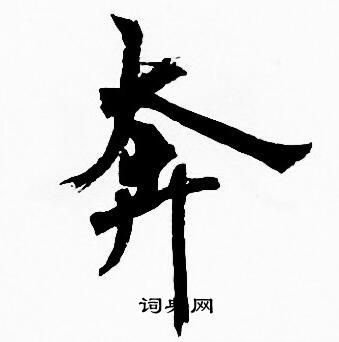 奔
词典网